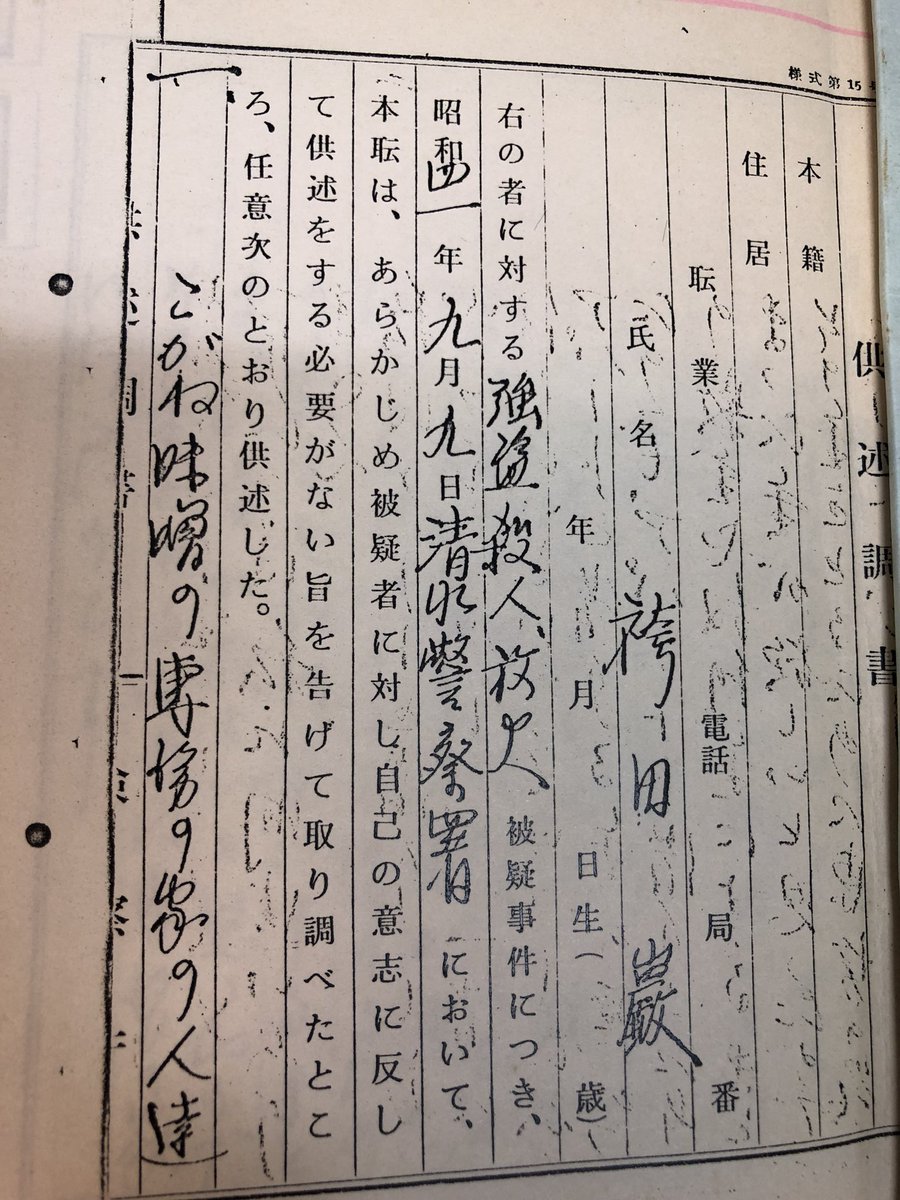 様式第15号
供述調書
本籍
住居
転業 電話 局 番
氏名 袴田 巌
年 月 日生( 歳)
右の者に対する強盗殺人、放火被疑事件につき、
昭和四一年九月九日清水警察署において、
本転は、あらかじめ被疑者に対し自己の意志に反し
て供述をする必要がない旨を告げて取り調べたとこ
ろ、任意次のとおり供述した。
一、こがね味噌の専務の家の人達